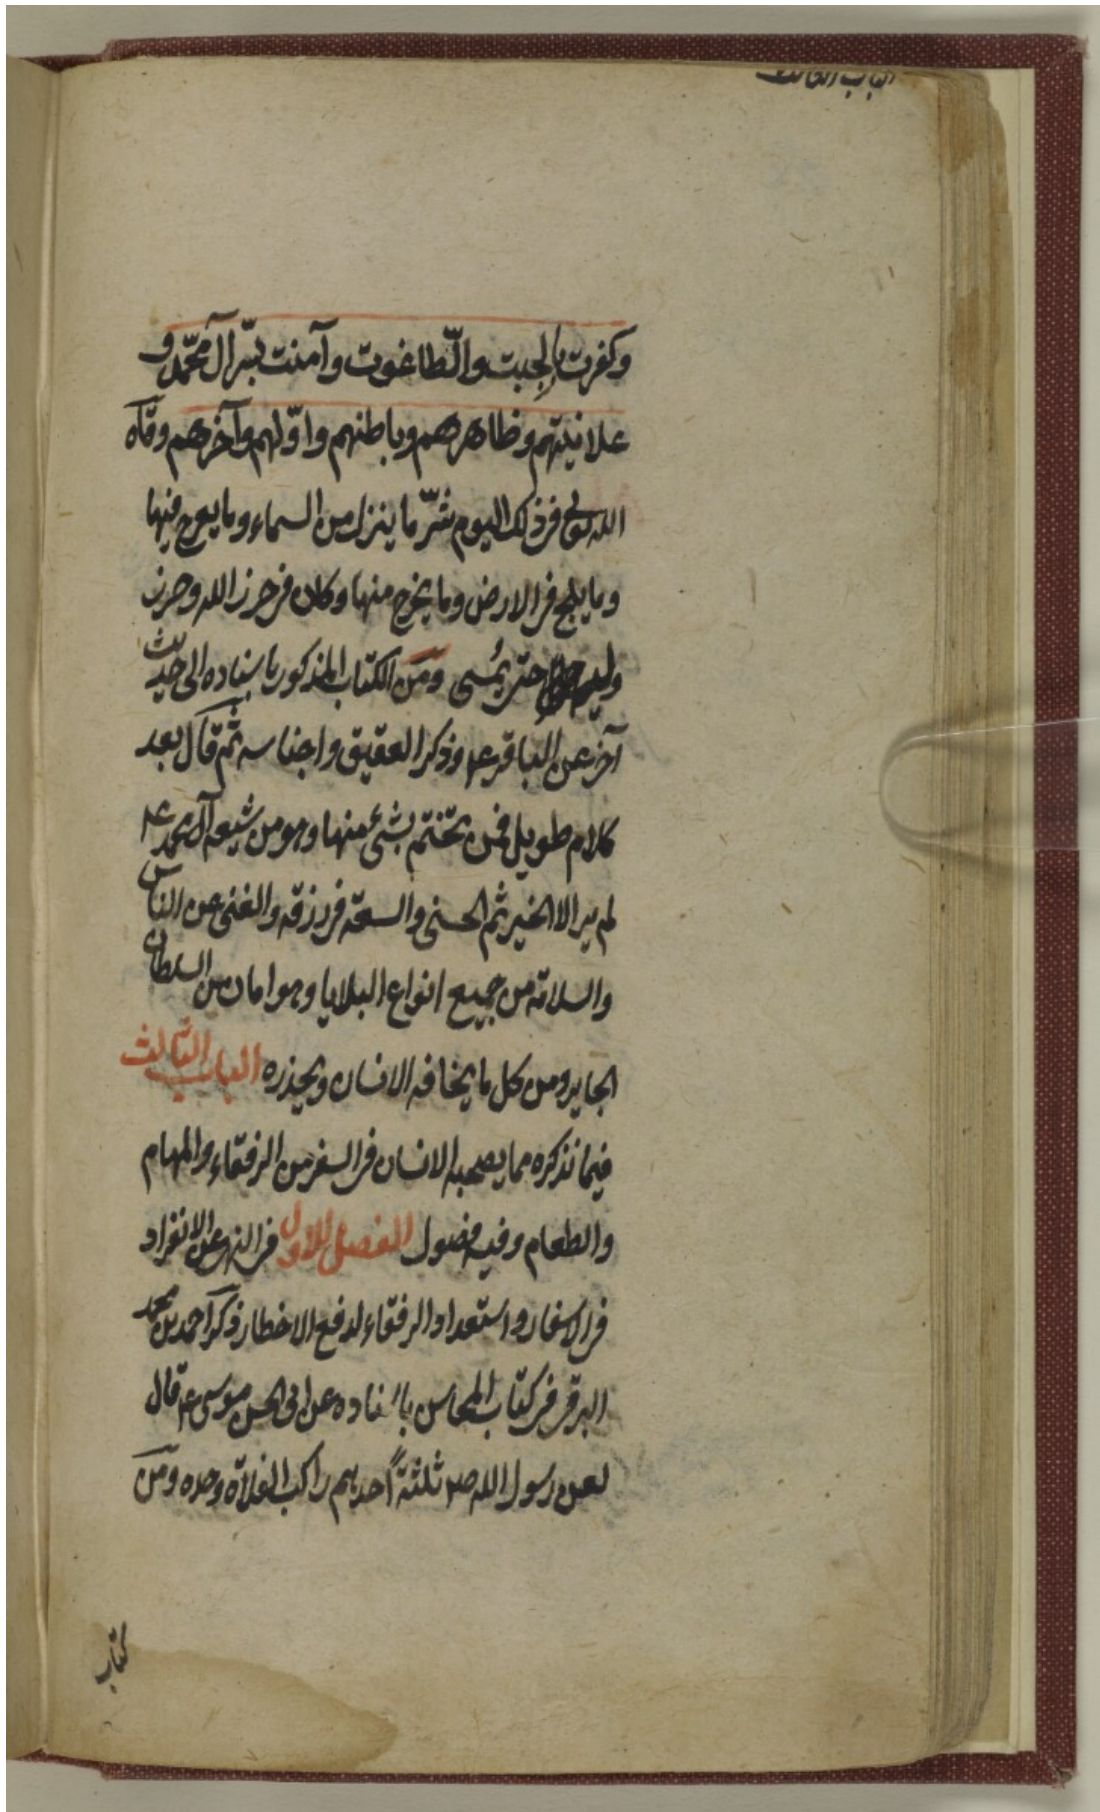 الباب الثالث
وكفرت بالجبت والطّاغوت وآمنت بسّر آل محمّد و
علانيتهم وظاهرهم وباطنهم واوّلهم وآخرهم وقاه
الله تع فى ذلك اليوم شرّ ما ينزل من السماء وما يعرج فيها
وما يلج فى الارض وما يخرج منها وكان فى حرز الله وحرز
وليه حتى يُمسى ومن الكتاب المذكور باسناده الى حديث
آخر عن الباقر ع وذكر العقيق واجناسه ثم قال بعد
كلام طويل فمن تختّم بشئ منها وهو من شيعه آل محمد ع
لم ير الا الخير ثم الحسنى والسعة فى رزقه والغنى عن الناس
والسلامة من جميع انواع البلايا وهو امان من السلطان
الجاير ومن كل ما يخافه الانسان ويحذره الباب الثالث
فيما نذكره مما يصحبه الانسان فى السفر من الرفقاء والمهام
والطعام وفيه فصول الفصل الاول فى النهى عن الانفراد
فى الاسفار واستعداد الرفقاء لدفع الاخطار ذكر احمد بن محمد
البرقى فى كتاب المحاسن باسناده عن ابى الحسن موسى ع قال
لعن رسول الله ص ثلثةً احدهم راكب الفلاة وحده ومن
كتاب